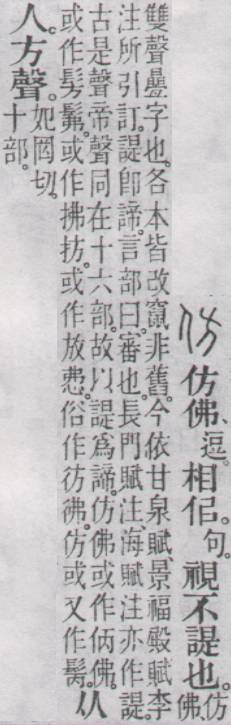 仿 仿佛、逗。相佀。句。視不諟也。仿佛
雙聲疊字也。各本皆改竄非舊。今依甘泉賦、景福殿賦李
注所引訂。諟卽諦。言部曰。審也。長門賦注、海賦注亦作諟。
古是聲帝聲同在十六部。故㠯諟爲諦。仿佛或作㑂佛。
或作髣髴。或作拂㧍。或作放㤄。俗作彷彿。仿或又作髣。从
人。方聲。妃罔切。十部。